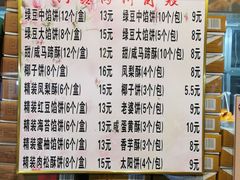 绿豆中馅饼12(个/盒) 13元 绿豆中馅饼10(个/包) 9元
绿豆大馅饼8(个/盒) 15元 绿豆大馅饼5(个/包) 8元
甜/咸马蹄酥6(个/盒) 15元 甜/咸马蹄酥5(个/包) 9元
椰子饼(8个/盒) 15元 凤梨酥(6个/包) 8元
精装凤梨酥(6个/盒) 13元 椰子饼(3个/包) 5.5元
精装红豆馅饼(6个/盒) 13元 老婆饼(5个/包) 9元
精装海苔馅饼(6个/盒) 13元 咸蛋黄酥(3个/包) 10元
精装蜜柚馅饼(6个/盒) 13元 香芋酥(3个/包) 8元
精装肉松酥饼(8个/盒) 15元 太阳饼(4个/包) 9元